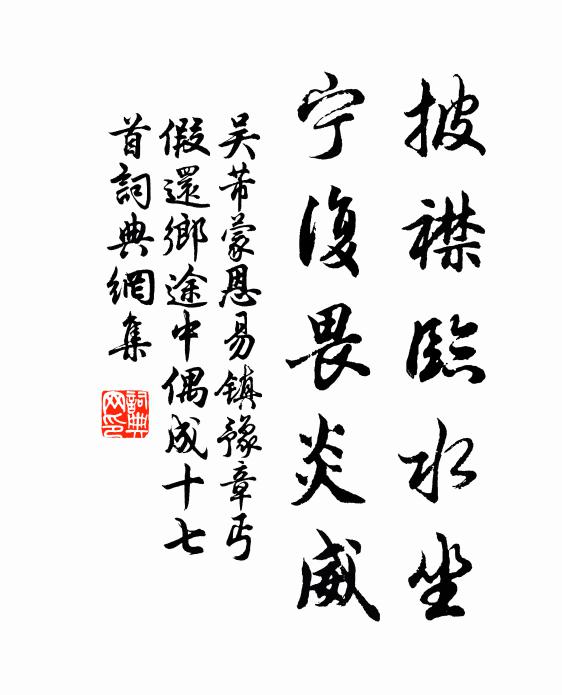 披襟臨水坐
宁復畏炎威
吴芾蒙恩易镇豫章丐
假還鄉途中偶成十七
首詞典網集
詞典
网印